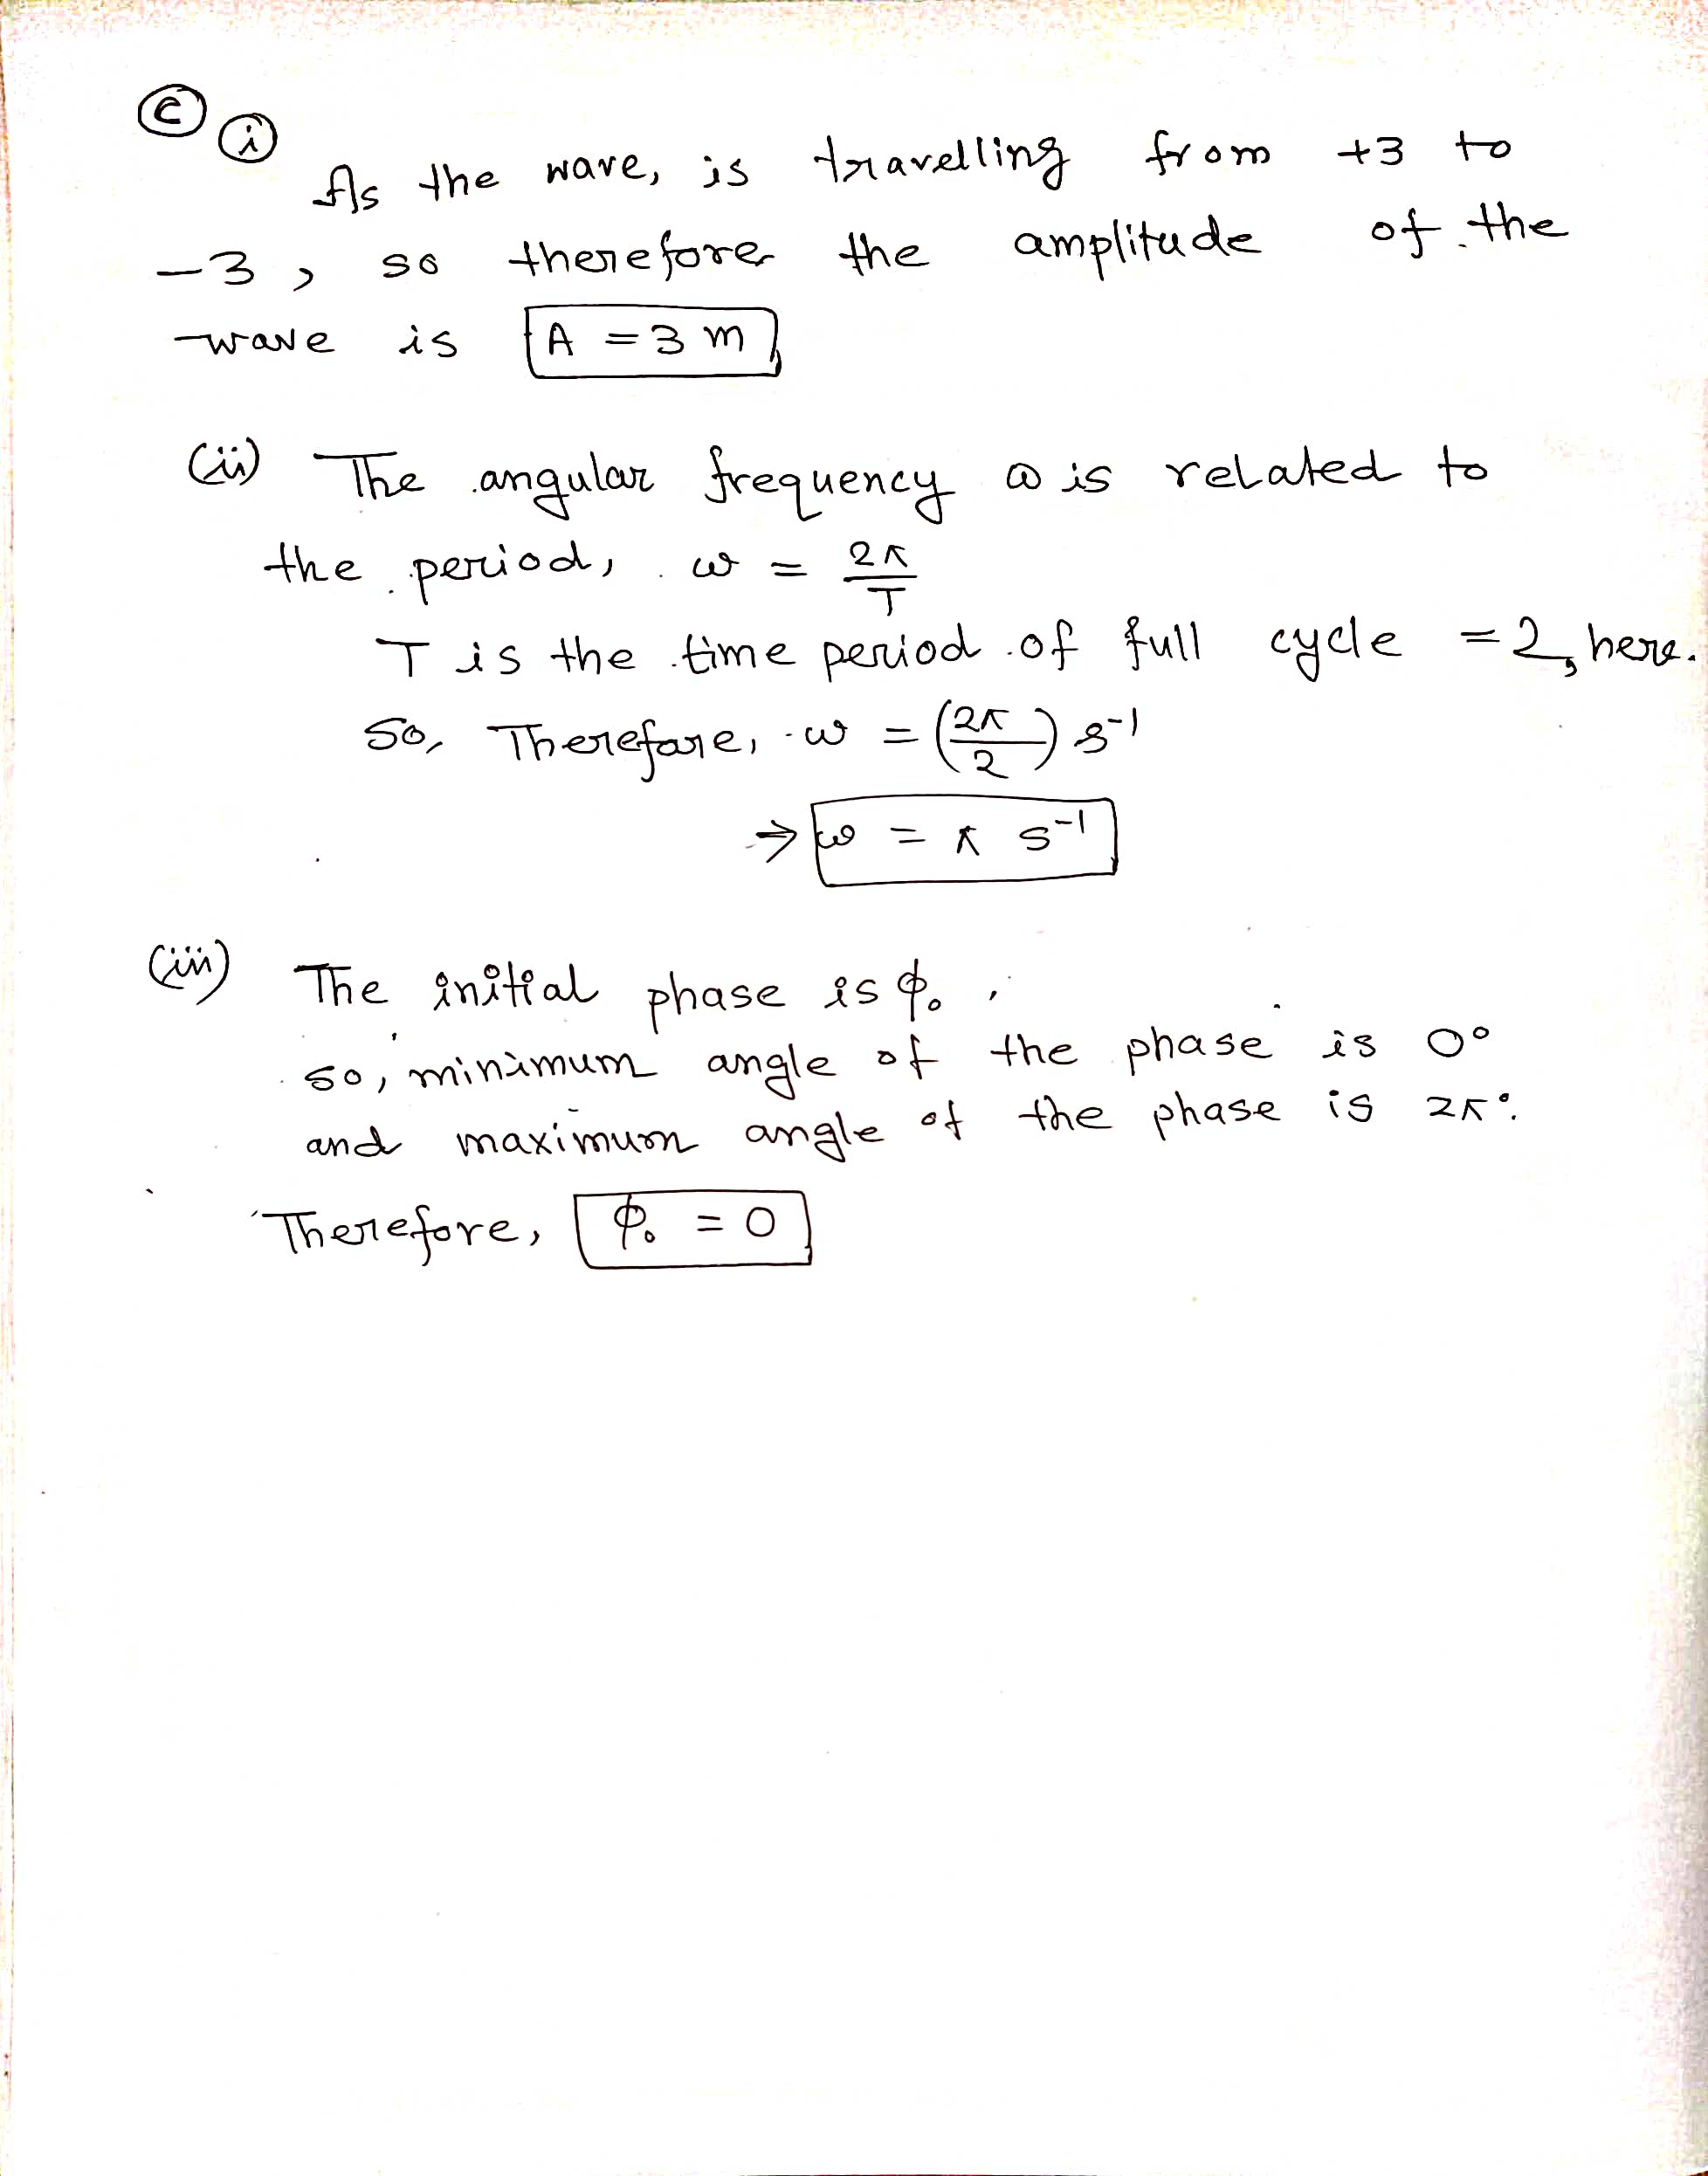 Ⓒ ⓘ
As the wave, is travelling from +3 to
-3, so therefore the amplitude of the
wave is A = 3 m
(ii) The angular frequency ω is related to
the period, ω = 2π/T
T is the time period of full cycle = 2, here.
So, Therefore, ω = (2π/2) s⁻¹
⇒ ω = π s⁻¹
(iii) The initial phase is ϕ₀,
so, minimum angle of the phase is 0°
and maximum angle of the phase is 2π°.
Therefore, ϕ₀ = 0